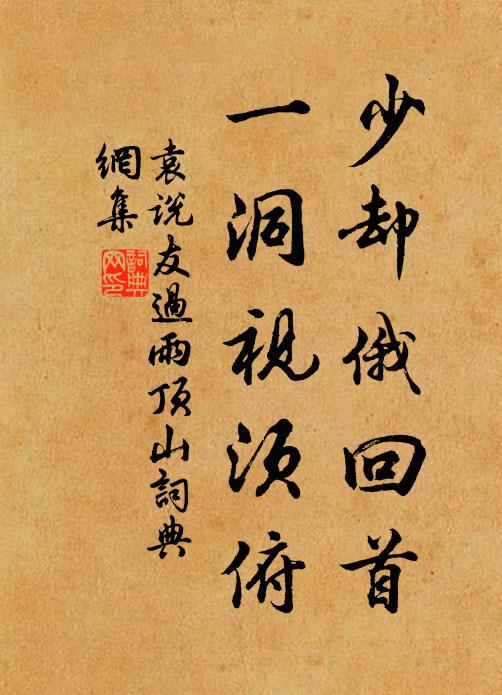 少却俄回首
一洞視須俯
袁說友過雨頂山詞典
網集
詞典
网印